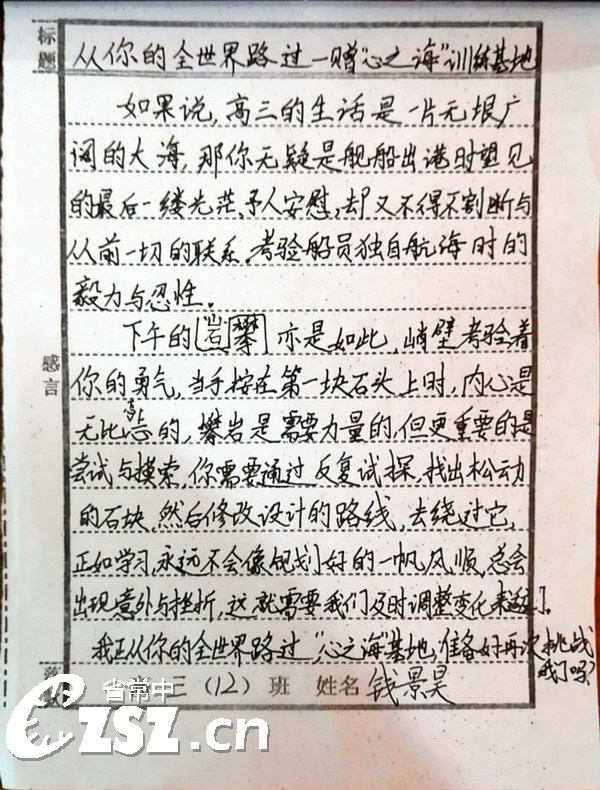 标题
从你的全世界路过—赠“心之海”训练基地
如果说,高三的生活是一片无垠广
阔的大海,那你无疑是舰船出港时望见
的最后一缕光茫,予人安慰,却又不得不割断与
从前一切的联系,考验船员独自航海时的
毅力与忍性。
下午的岩攀亦是如此,峭壁考验着
你的勇气,当手按在第一块石头上时,内心是
无比忐忑的,攀岩是需要力量的,但更重要的是
尝试与摸索,你需要通过反复试探,找出松动
的石块,然后修改设计的路线,去绕过它,
正如学习,永远不会像规划好的一帆风顺,总会
出现意外与挫折,这就需要我们及时调整变化来
我正从你的全世界路过,“心之海”基地,准备好再次挑战
我们吗?
感言
三(12)班 姓名 钱景昊
省常中
czsz.cn